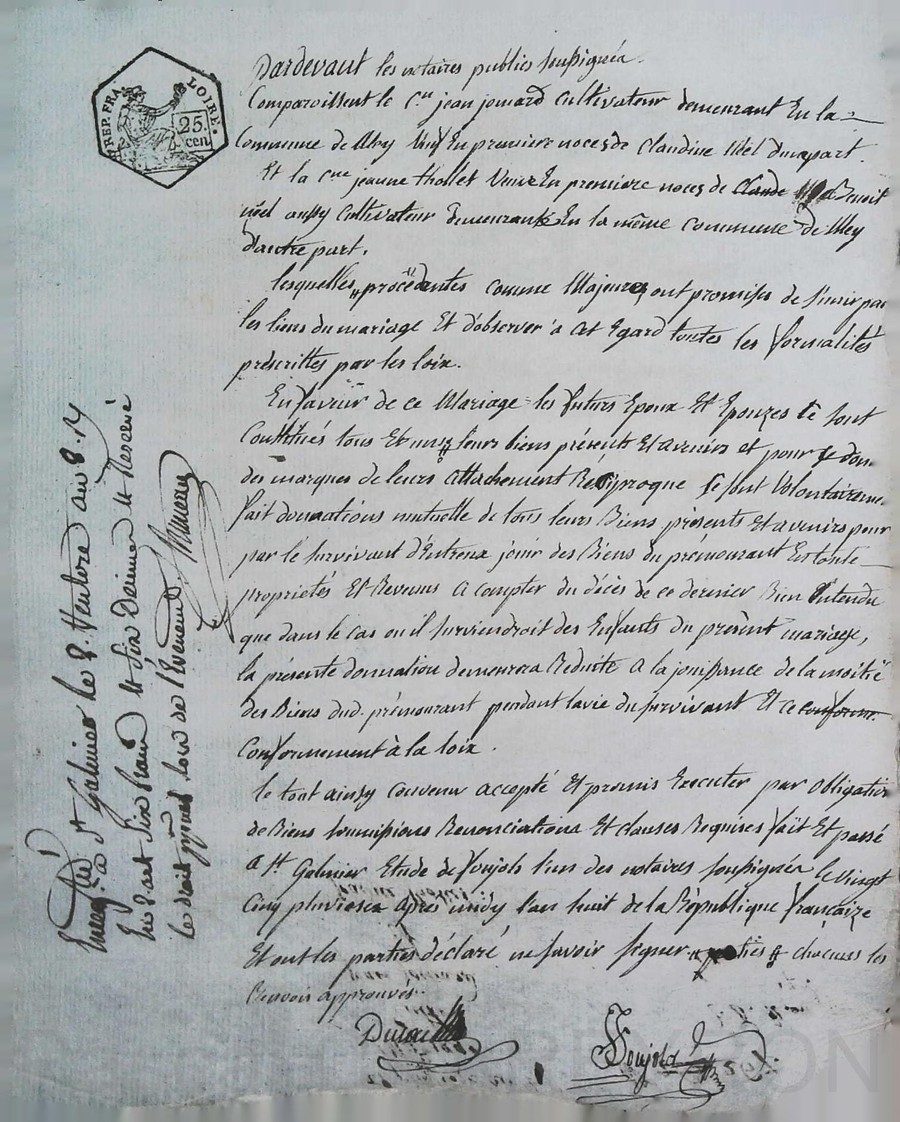 REP. FRA. LOIRE.
25.
cen.
Pardevant les notaires publics soussignés.
Comparoissent le C.en jean jomard Cultivateur demeurant En la
Commune de Veuf En premiere noces de Claudine Noël d'une part.
Et la C.ne jeanne thollet Veuve En premiere noces de Claude Benoit
noël aussy Cultivateur demeurante En la même commune de
d'autre part.
lesquelles procédentes comme Majeures ont promises de s'unir par
les liens du mariage Et d'observer a cet Egard toutes les formalités
préscrittes par les loix.
En faveur de ce Mariage les futurs Epoux Et Epouzes se sont
Constitués tous Et uns leurs biens présents Et avenirs et pour se don-
des marques de leurs attachement Reciproque se sont Volontaireme
fait donnations mutuelle de tous leurs Biens présents Et avenirs pour
par le survivant d'Entreux jouir des Biens du prémourant En toute
propriétés Et Revenus a compter du décès de ce dernier Bien Entendu
que dans le cas ou il surviendroit des Enfants du présent mariage,
la présente donnation demeurera Reduite a la jouissance de la moitié
des Biens dud. prémourant pendant la vie du survivant Et ce conforme
Conformement à la loix.
le tout ainsy convenu accepté Et promis Executer par obligation
de Biens soumissions Renonciations Et clauses Requises fait Et passé
a St. Galmier Etude de foujols l'un des notaires soussignés le vingt
Cinq pluviose après midy l'an huit de la République françaize
Et ont les parties déclaré ne savoir signer chacuns les
Renvois approuvés.
foujols
Enreg.é a St Galmier le 8. Ventose an 8.
six franc et six Decimes
le droit lors de l'évenement